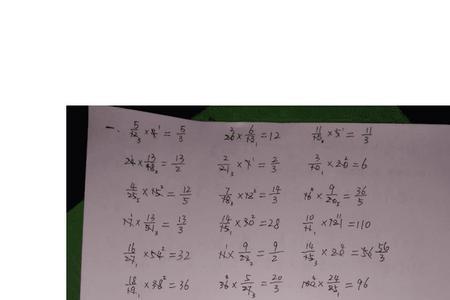 一、 5/12 × 4 = 5/3  26 × 6/13 = 12  11/15 × 5 = 11/3
24 × 13/48 = 13/2  2/21 × 7 = 2/3  3/10 × 20 = 6
4/25 × 15 = 12/5  7/18 × 12 = 14/3  16 × 9/20 = 36/5
17 × 13/51 = 13/3  14/15 × 30 = 28  10/11 × 121 = 110
16/27 × 54 = 32  11 × 9/22 = 9/2  14/15 × 20 = 56/3
18/19 × 38 = 36  36 × 5/27 = 20/3  100 × 24/25 = 96